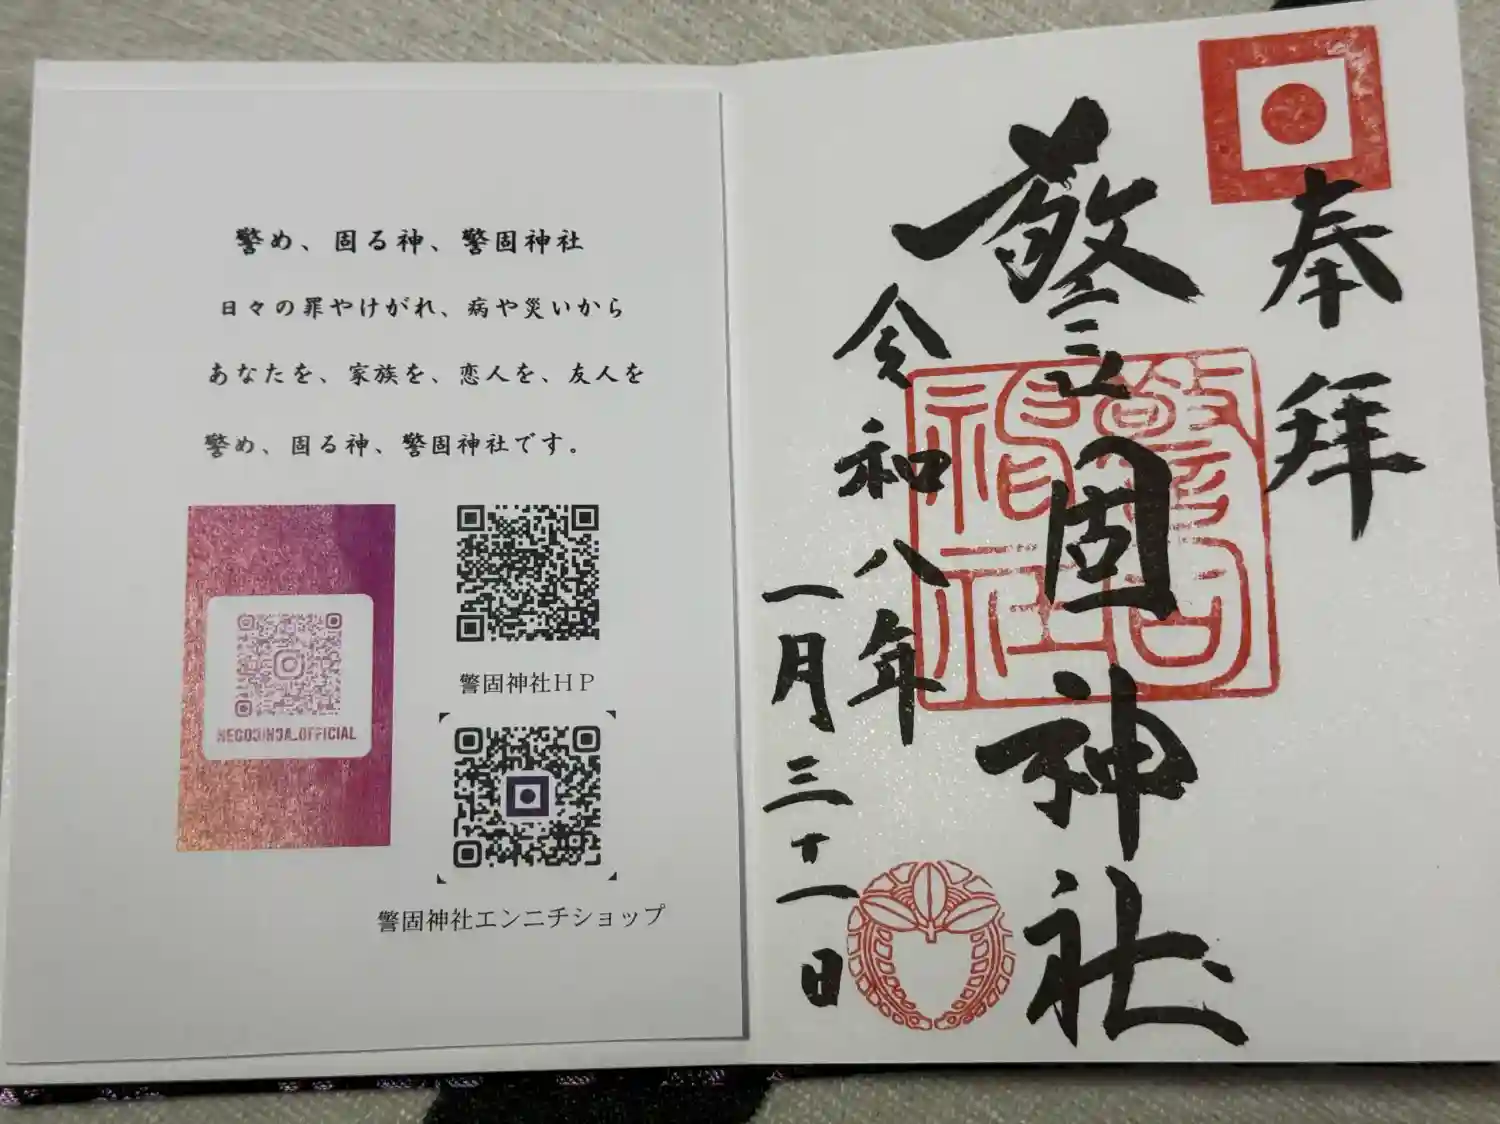 警め、固る神、警固神社
日々の罪やけがれ、病や災いから
あなたを、家族を、恋人を、友人を
警め、固る神、警固神社です。
KEGOJINJA_OFFICIAL
警固神社HP
警固神社エンニチショップ
奉拝
警固神社
令和八年
一月三十一日
警固神社